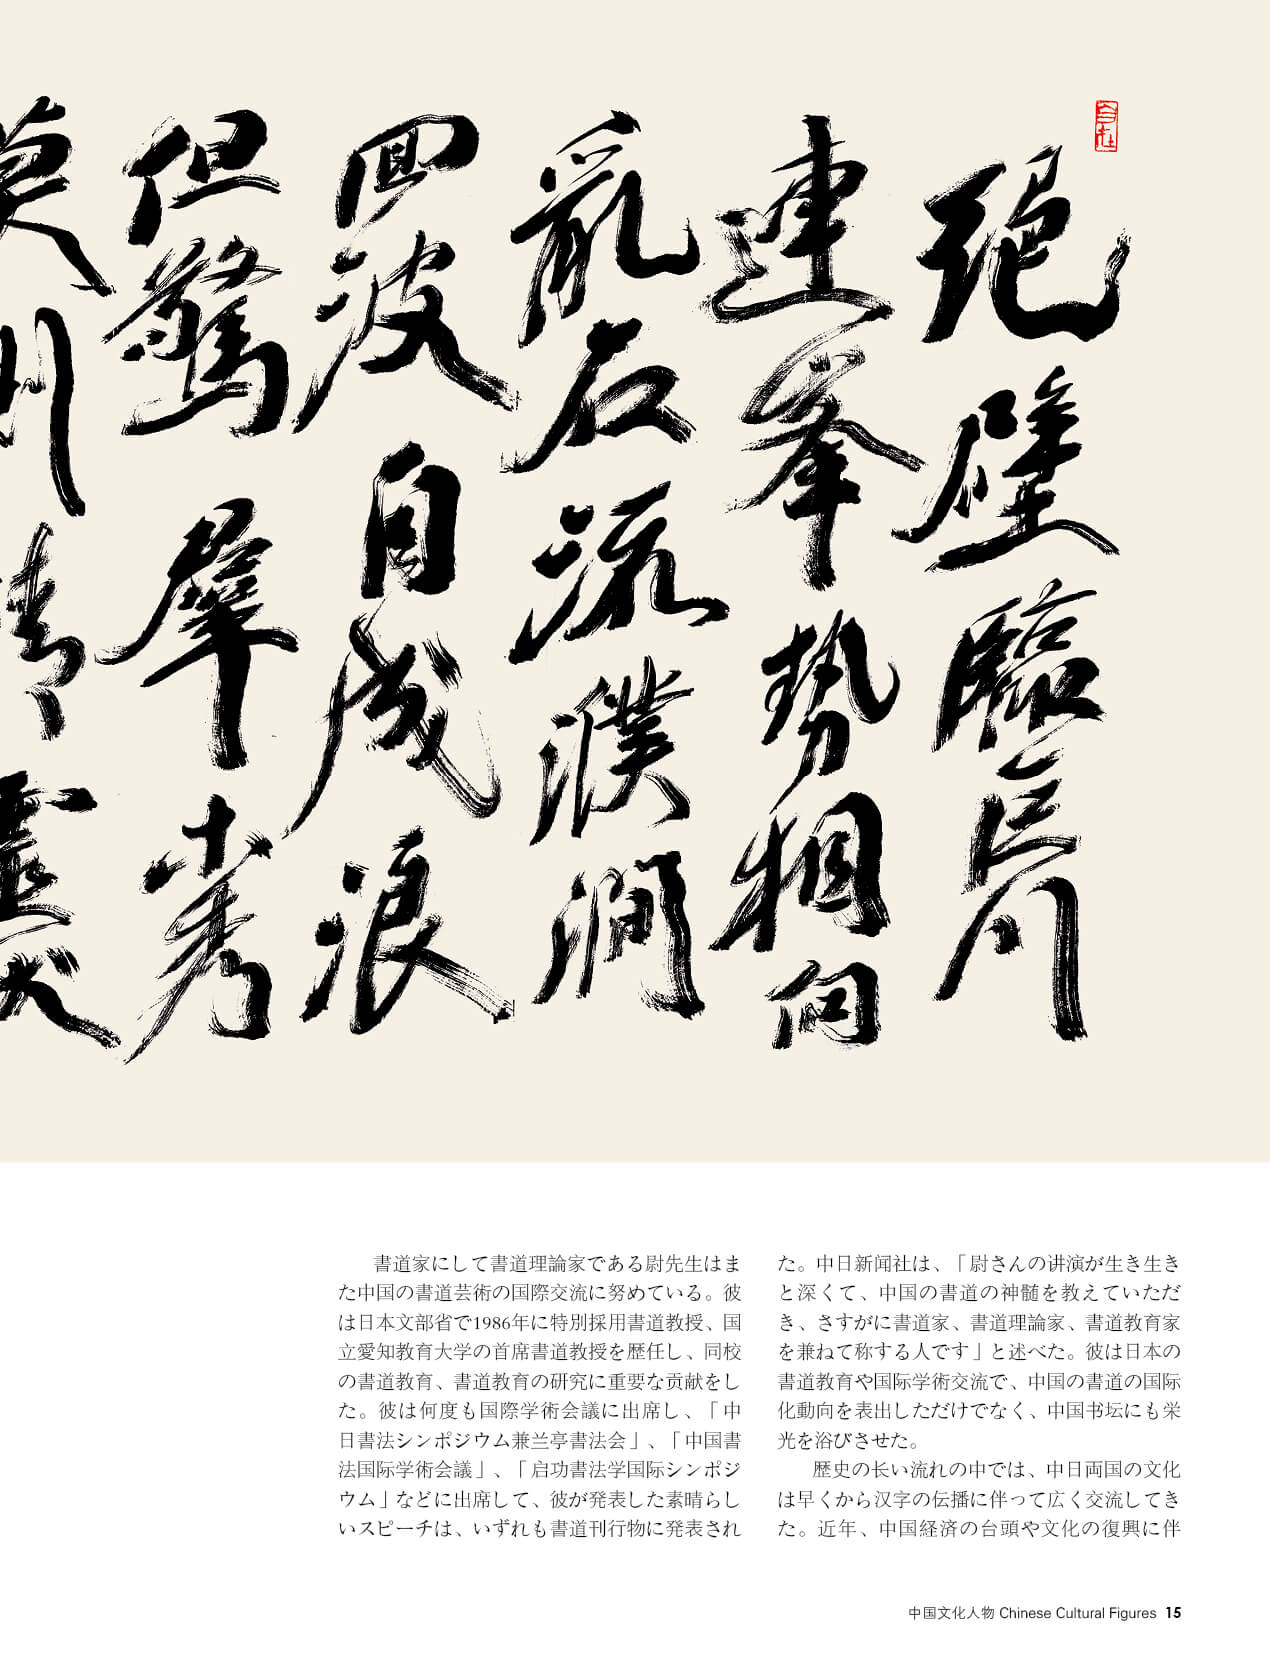 自在
絶壁臨長川
連峯勢相向
亂石流濮澗
囬波自成浪
但驚羣木秀
書道家にして書道理論家である尉先生はま
た中国の書道芸術の国際交流に努めている。彼
は日本文部省で1986年に特別採用書道教授、国
立愛知教育大学の首席書道教授を歴任し、同校
の書道教育、書道教育の研究に重要な貢献をし
た。彼は何度も国際学術会議に出席し、「中
日書法シンポジウム兼兰亭書法会」、「中国書
法国际学術会議」、「启功書法学国际シンポジ
ウム」などに出席して、彼が発表した素晴らし
いスピーチは、いずれも書道刊行物に発表され
た。中日新闻社は、「尉さんの讲演が生き生き
と深くて、中国の書道の神髄を教えていただ
き、さすがに書道家、書道理論家、書道教育家
を兼ねて称する人です」と述べた。彼は日本の
書道教育や国际学術交流で、中国の書道の国际
化動向を表出しただけでなく、中国书坛にも栄
光を浴びさせた。
歴史の长い流れの中では、中日両国の文化
は早くから汉字の伝播に伴って広く交流してき
た。近年、中国経済の台頭や文化の復興に伴
中国文化人物 Chinese Cultural Figures 15